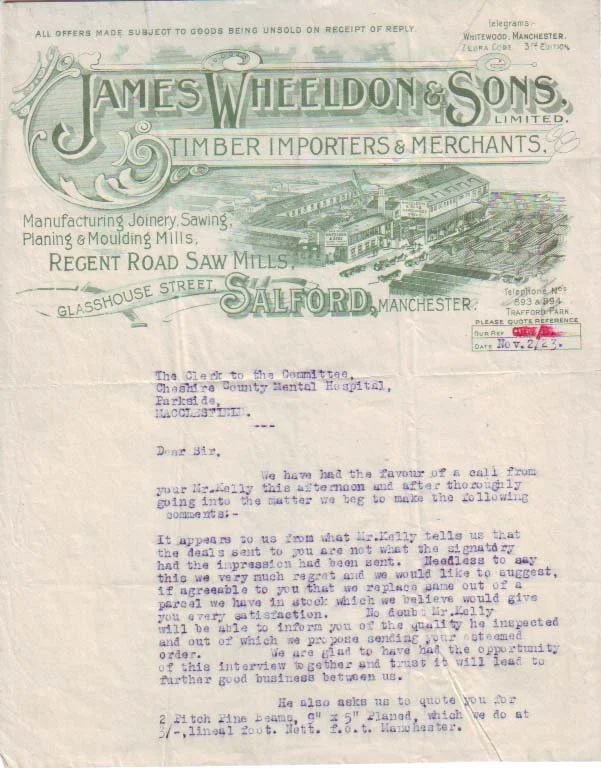 ALL OFFERS MADE SUBJECT TO GOODS BEING UNSOLD ON RECEIPT OF REPLY.
Telegrams:-
WHITEWOOD, MANCHESTER.
ZEBRA CODE 3rd EDITION.
JAMES WHEELDON & SONS,
LIMITED.
TIMBER IMPORTERS & MERCHANTS.
Manufacturing Joinery, Sawing,
Planing & Moulding Mills,
REGENT ROAD SAW MILLS,
GLASSHOUSE STREET,
SALFORD, MANCHESTER.
Telephone Nos
893 & 894
TRAFFORD PARK.
PLEASE QUOTE REFERENCE
OUR REF
DATE Nov. 2/23.
The Clerk to the Committee,
Cheshire County Mental Hospital,
Parkside,
MACCLESFIELD.
---
Dear Sir,
We have had the favour of a call from
your Mr.Kelly this afternoon and after thoroughly
going into the matter we beg to make the following
comments:-
It appears to us from what Mr.Kelly tells us that
the deals sent to you are not what the signatory
had the impression had been sent. Needless to say
this we very much regret and we would like to suggest,
if agreeable to you that we replace same out of a
parcel we have in stock which we believe would give
you every satisfaction. No doubt Mr.Kelly
will be able to inform you of the quality he inspected
and out of which we propose sending your esteemed
order. We are glad to have had the opportunity
of this interview together and trust it will lead to
further good business between us.
He also asks us to quote you for
2 Pitch Pine Beams, 9" x 5" Planed, which we do at
3/-, lineal foot. Nett. f.o.t. Manchester.